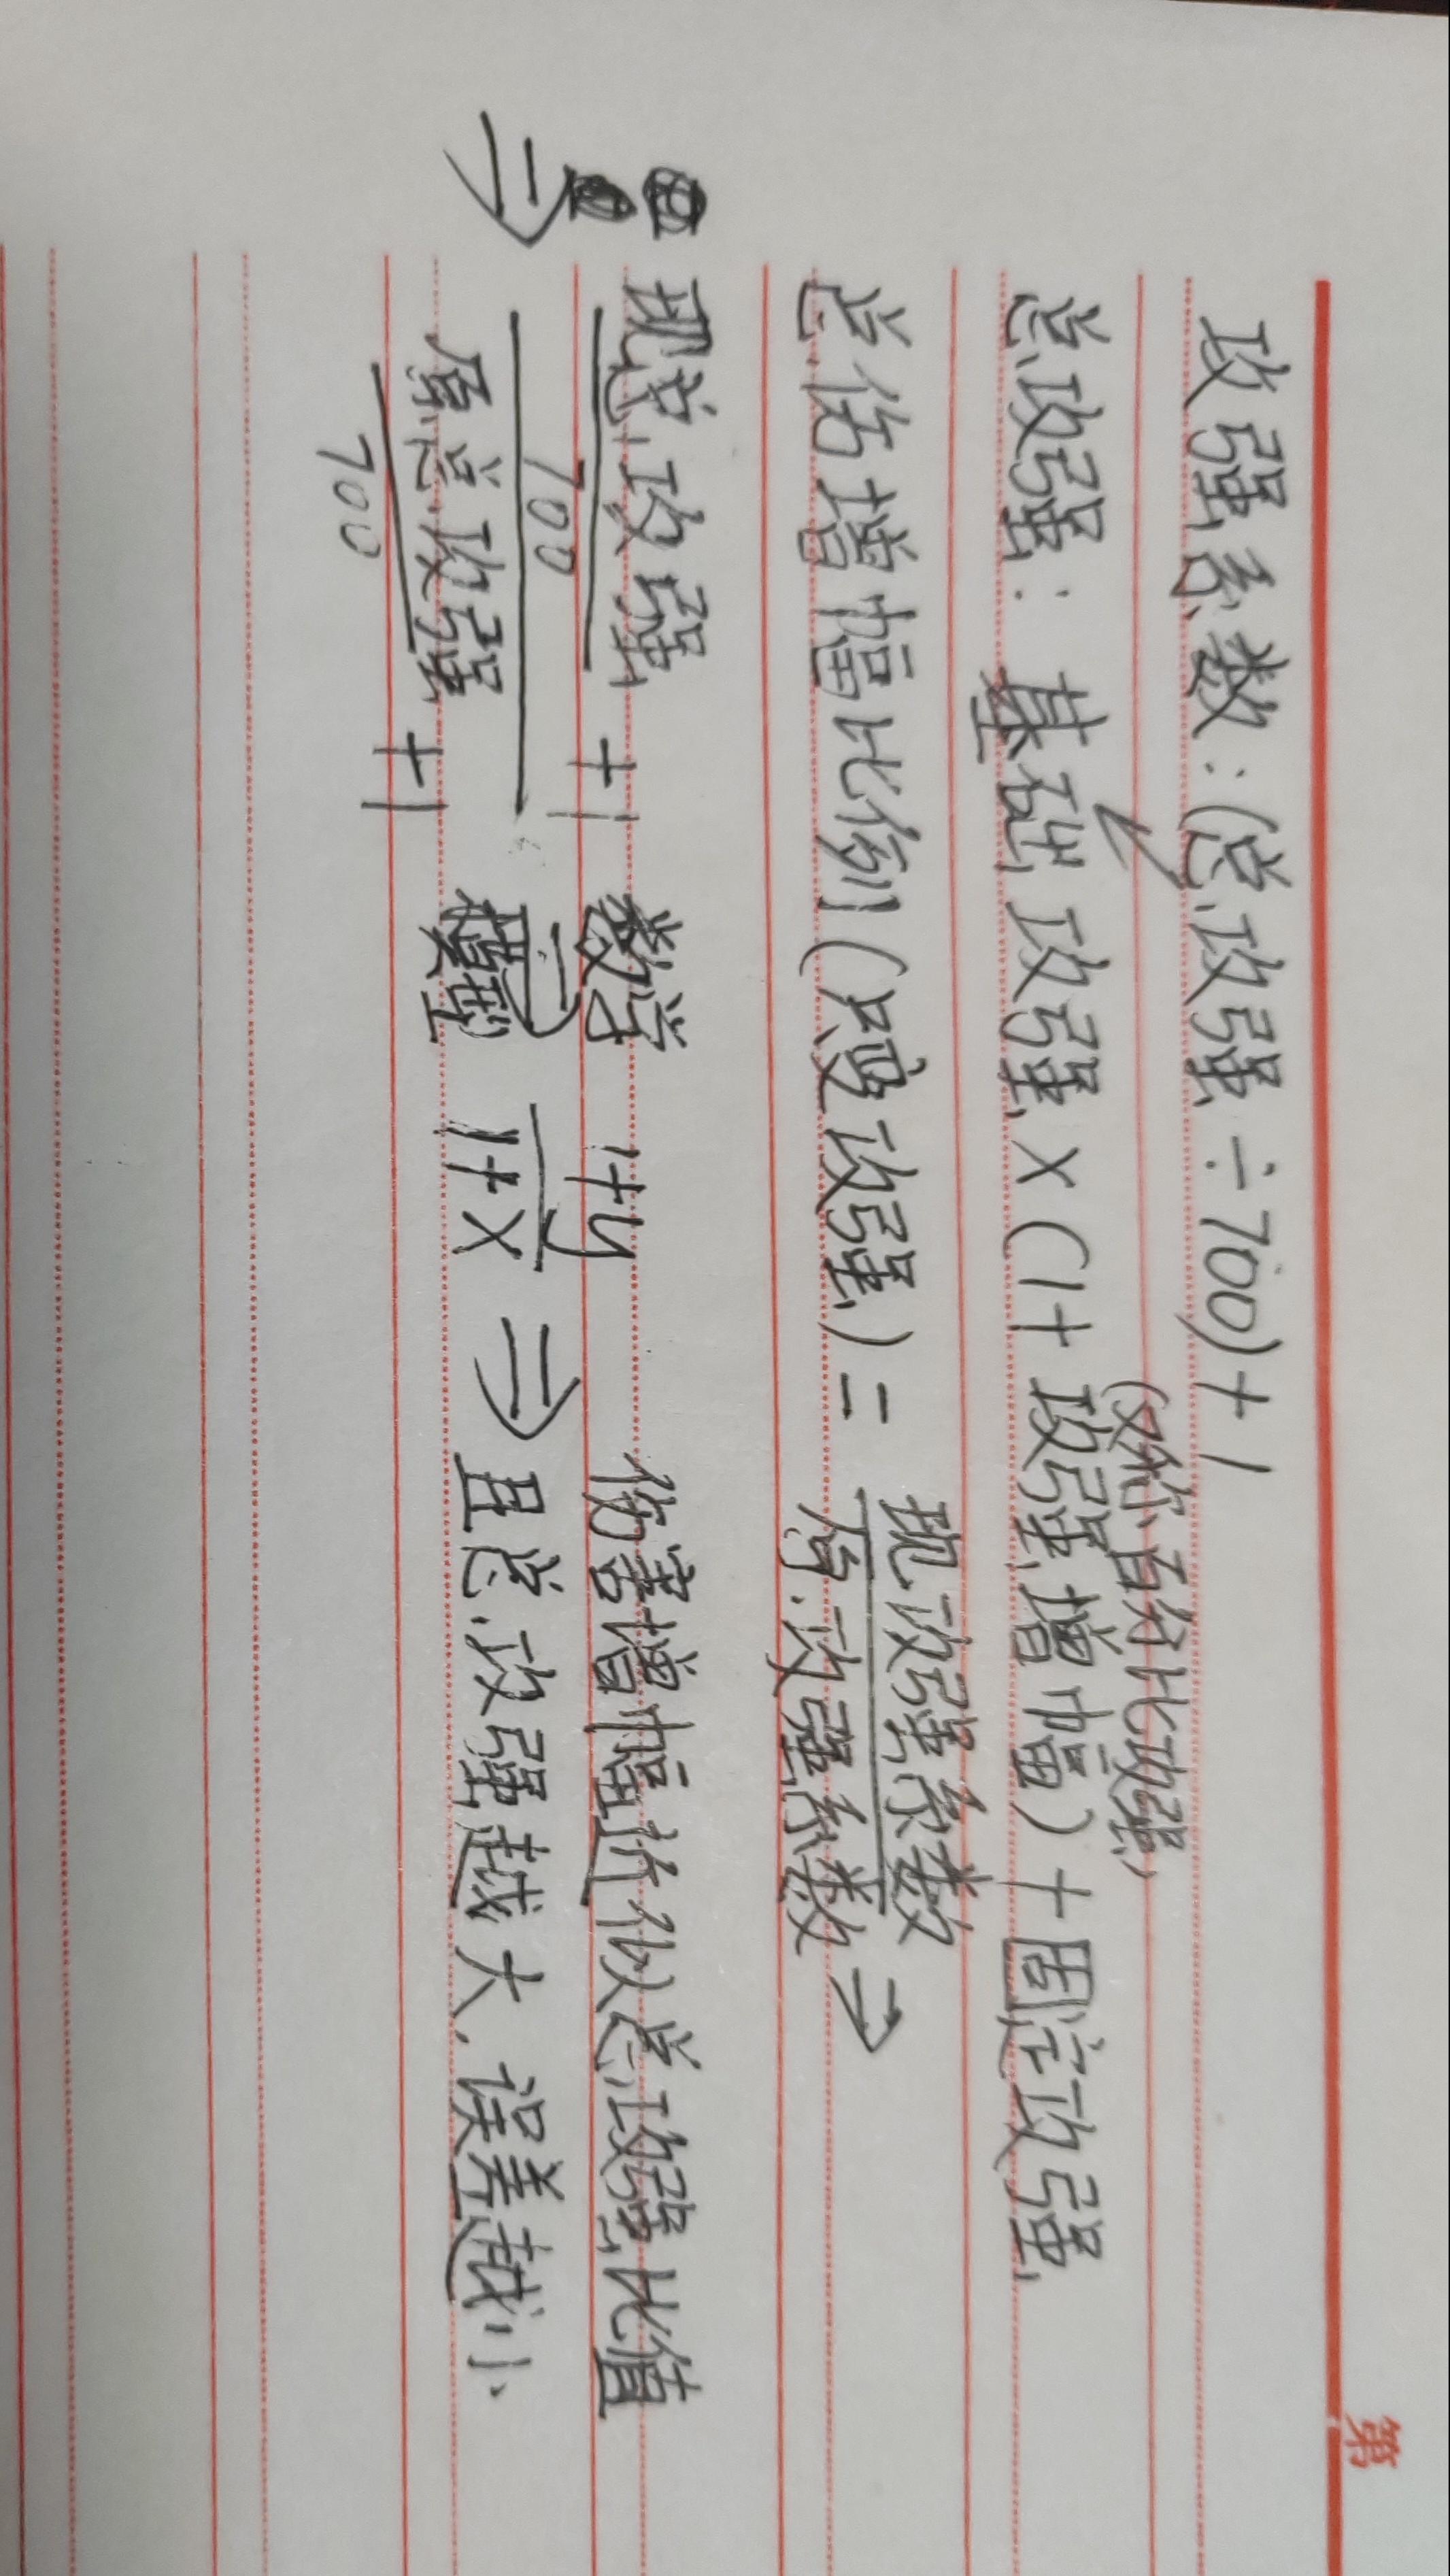 第
攻强系数：(总攻强÷700)+1
(又称百分比攻强)
总攻强：基础攻强×(1+攻强增幅)+固定攻强
总伤增幅比例(只变攻强)= 现攻强系数/原攻强系数 ⇒
⇒ (现总攻强/700 + 1)/(原总攻强/700 + 1) 数学模型 (1+y)/(1+x) ⇒ 伤害增幅近似总攻强比值
且总攻强越大,误差越小